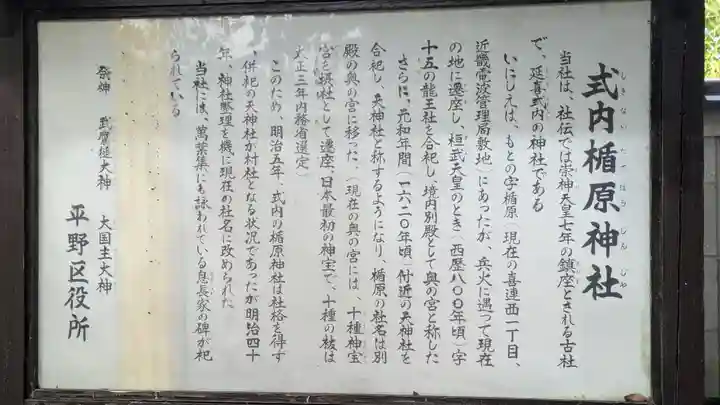 式内楯原神社
しきないたてはらじんじゃ
当社は、社伝では崇神天皇七年の鎮座とされる古社
で、延喜式内の神社である
いにしえは、もとの字楯原（現在の喜連西一丁目、
近畿電波管理局敷地）にあったが、兵火に遇つて現在
の地に遷座し、桓武天皇のとき（西歴八〇〇年頃）字
十五の龍王社を合祀し、境内別殿として奥の宮と称した
さらに、元和年間（一六二〇年頃）付近の天神社を
合祀し、天神社と称するようになり、楯原の社名は別
殿の奥の宮に移つた。（現在の奥の宮には、十種神宝
宮を摂社として遷座、日本最初の神宝で、十種の祓は
大正三年内務省選定）
このため、明治五年、式内の楯原神社は社格を得ず
、併祀の天神社が村社となる状況であつたが明治四十
年、神社整理を機に現在の社名に改められた
当社には、萬葉集にも詠われている息長家の碑が祀
られている
祭神 武甕槌大神 大国主大神
平野区役所